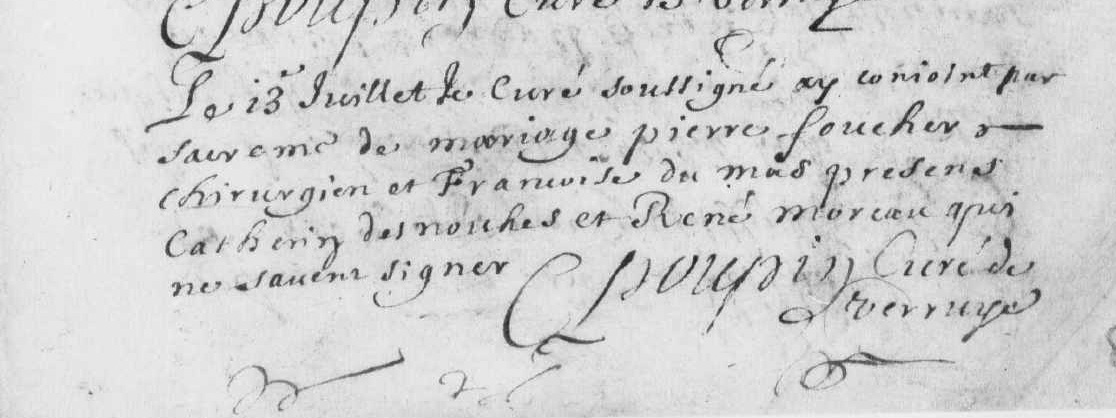 Poupin Curé d Verruye
Le 13e Juillet Je Curé soussigné ay conioint par
sacreme de mariage pierre foucher
chirurgien et Francoise du mas presens
Catherin desnouhes et René moreau qui
ne savent signer
Poupin Curé de
Verruye